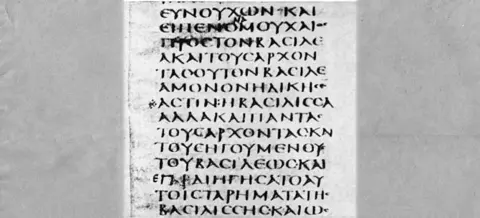 ΕΥΝΟΥΧΩΝ ΚΑΙ
ΟΜΟΥΧΑΙ
ΠΡΟϹΤΟΝΒΑϹΙΛΕ
ΑΚΑΙΤΟΥϹΑΡΧΟΝ
ΤΑϹΟΥΤΟΝΒΑϹΙΛΕ
ΑΜΟΝΟΝΗΔΙΚΗ
ΑϹΤΙΝ:ΗΒΑϹΙΛΙϹϹΑ
ΑΛΛΑΚΑΙΠΑΝΤΑ
ΤΟΥϹΑΡΧΟΝΤΑϹΚΑΙ
ΤΟΥϹΗΓΟΥΜΕΝΟΥ
ΤΟΥΒΑϹΙΛΕΩϹ·ΚΑΙ
ΔΙΗΓΗϹΑΤΟΑΥ
ΤΟΙϹΤΑΡΗΜΑΤΑΤΗ
ΒΑϹΙΛΙϹϹΗϹΚΑΙΩ